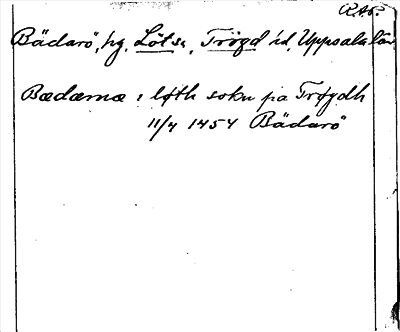 R.A.P.
Bädarö, hg, Löts s., Trögd hd, Uppsala län
Bædærnæ i løth sokn pa Trøgdh
11/4 1454 Bädarö